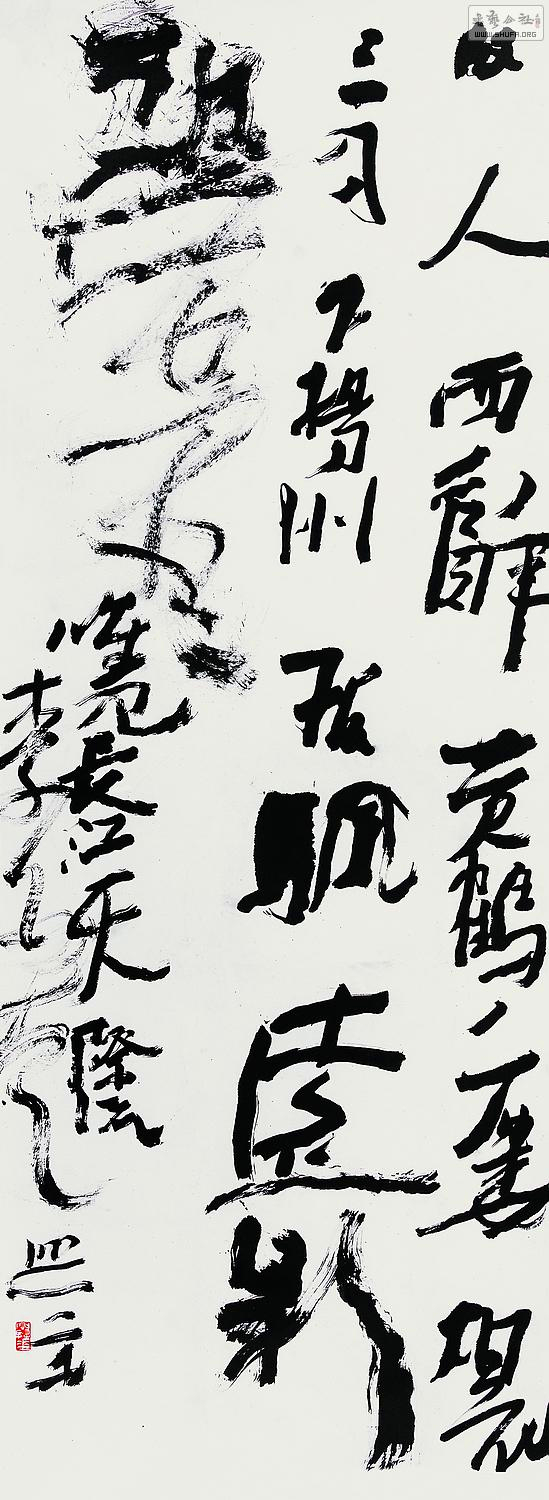 故人西辭黃鶴樓煙花
三月下揚州孤帆遠影
碧空盡唯見長江天際流
李白
書藝公社
WWW.SHUFA.ORG